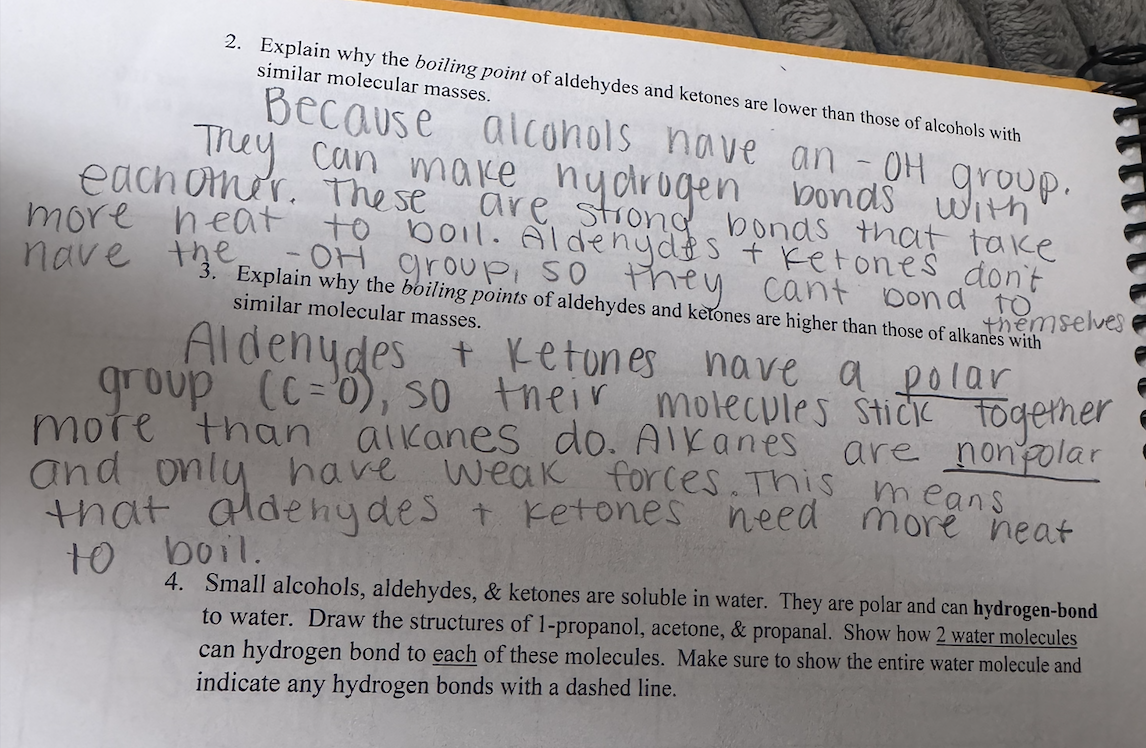 2. Explain why the boiling point of aldehydes and ketones are lower than those of alcohols with
similar molecular masses.
Because alcohols have an -OH group.
They can make hydrogen bonds with
each other. These are strong bonds that take
more heat to boil. Aldehydes + ketones don't
have the -OH group, so they cant bond to
themselves
3. Explain why the boiling points of aldehydes and ketones are higher than those of alkanes with
similar molecular masses.
Aldehydes + Ketones have a polar
group (C=O), so their molecules stick together
more than alkanes do. Alkanes are nonpolar
and only have weak forces. This means
that aldehydes + ketones need more heat
to boil.
4. Small alcohols, aldehydes, & ketones are soluble in water. They are polar and can hydrogen-bond
to water. Draw the structures of 1-propanol, acetone, & propanal. Show how 2 water molecules
can hydrogen bond to each of these molecules. Make sure to show the entire water molecule and
indicate any hydrogen bonds with a dashed line.